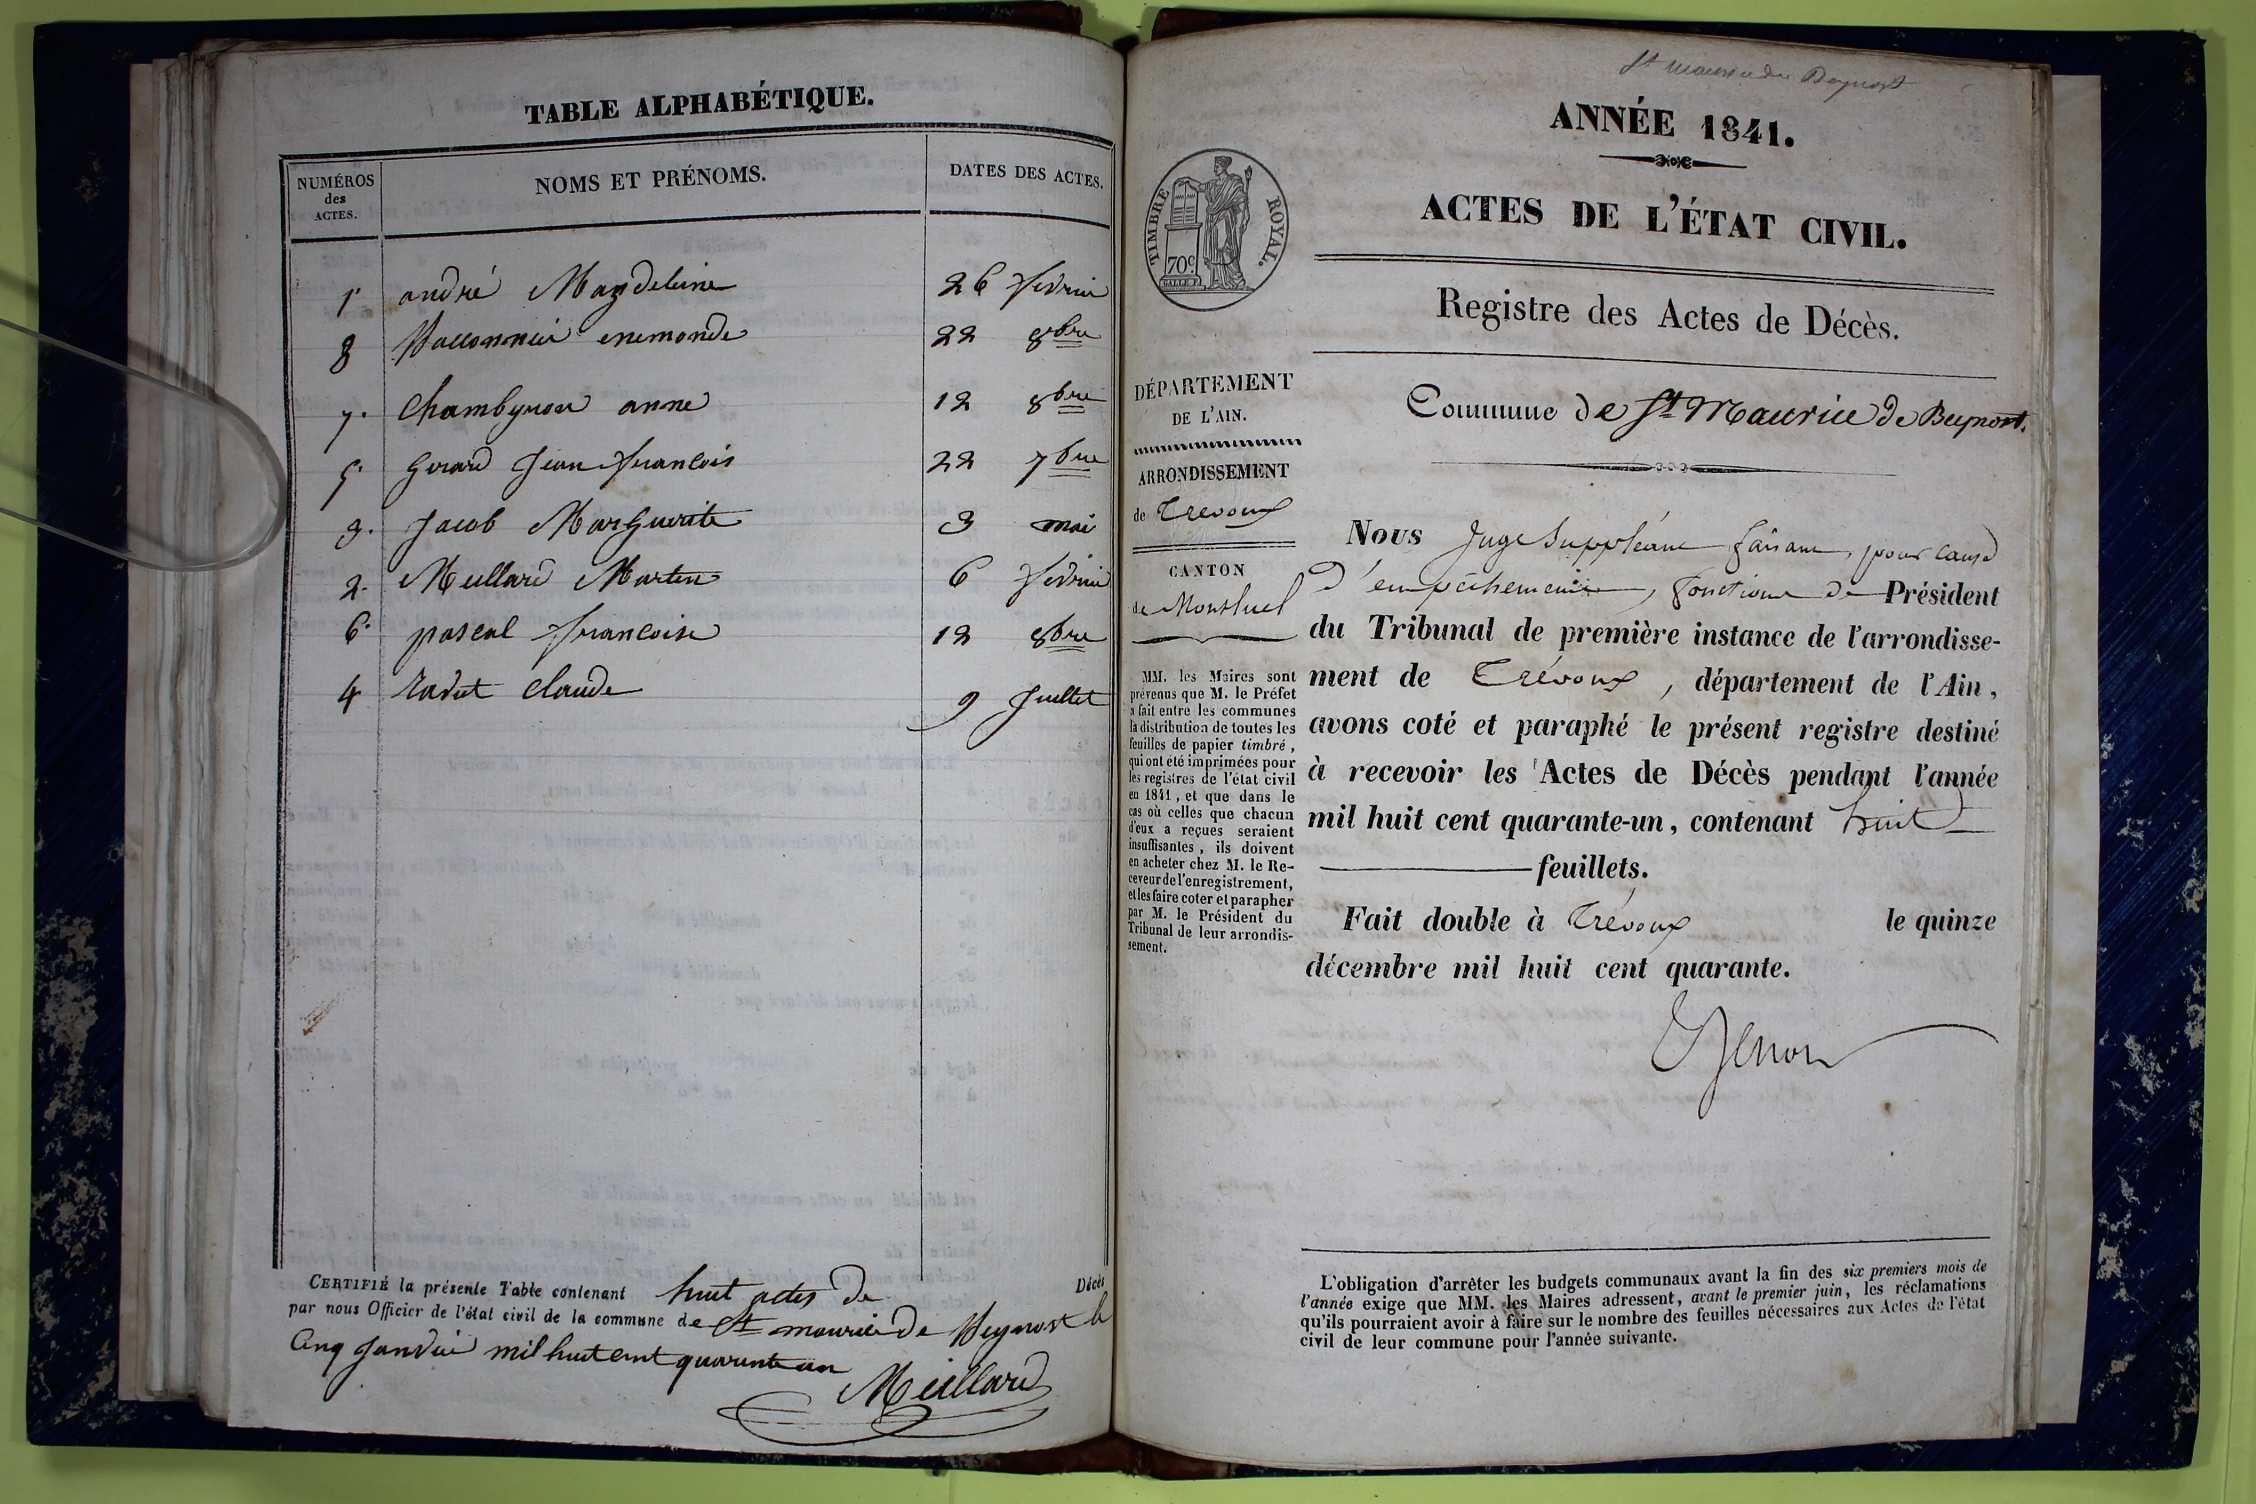 TABLE ALPHABÉTIQUE.
NUMÉROS des ACTES.
NOMS ET PRÉNOMS.
DATES DES ACTES.
1 andré Magdeleine 26 fevrier
8 enemonde 22 8bre
7. anne 12 8bre
5. Jean francois 22 7bre
3. Jacob Marguerite 3 mai
2. Meillard Martin 6 fevrier
6. pascal francoise 12 8bre
4 claude 9 Juillet
CERTIFIÉ la présente Table contenant huit actes de Décès
par nous Officier de l'état civil de la commune de St maurice de Beynost le
Cinq Janvier mil huit cent quarante un
Meillard
St maurice de Beynost
ANNÉE 1841.
ACTES DE L'ÉTAT CIVIL.
TIMBRE ROYAL.
70c
Registre des Actes de Décès.
Commune de St Maurice de Beynost.
DÉPARTEMENT
DE L'AIN.
ARRONDISSEMENT
de Trevoux
CANTON
de Montluel
MM. les Maires sont
prévenus que M. le Préfet
a fait entre les communes
la distribution de toutes les
feuilles de papier timbré,
qui ont été imprimées pour
les registres de l'état civil
en 1841, et que dans le
cas où celles que chacun
d'eux a reçues seraient
insuffisantes, ils doivent
en acheter chez M. le Re-
ceveur de l'enregistrement,
et les faire coter et parapher
par M. le Président du
Tribunal de leur arrondis-
sement.
Nous Juge Suppléant faisant, pour cause
d'empêchement, fonctions de Président
du Tribunal de première instance de l'arrondisse-
ment de Trévoux, département de l'Ain,
avons coté et paraphé le présent registre destiné
à recevoir les Actes de Décès pendant l'année
mil huit cent quarante-un, contenant huit
feuillets.
Fait double à Trévoux le quinze
décembre mil huit cent quarante.
L'obligation d'arrêter les budgets communaux avant la fin des six premiers mois de
l'année exige que MM. les Maires adressent, avant le premier juin, les réclamations
qu'ils pourraient avoir à faire sur le nombre des feuilles nécessaires aux Actes de l'état
civil de leur commune pour l'année suivante.